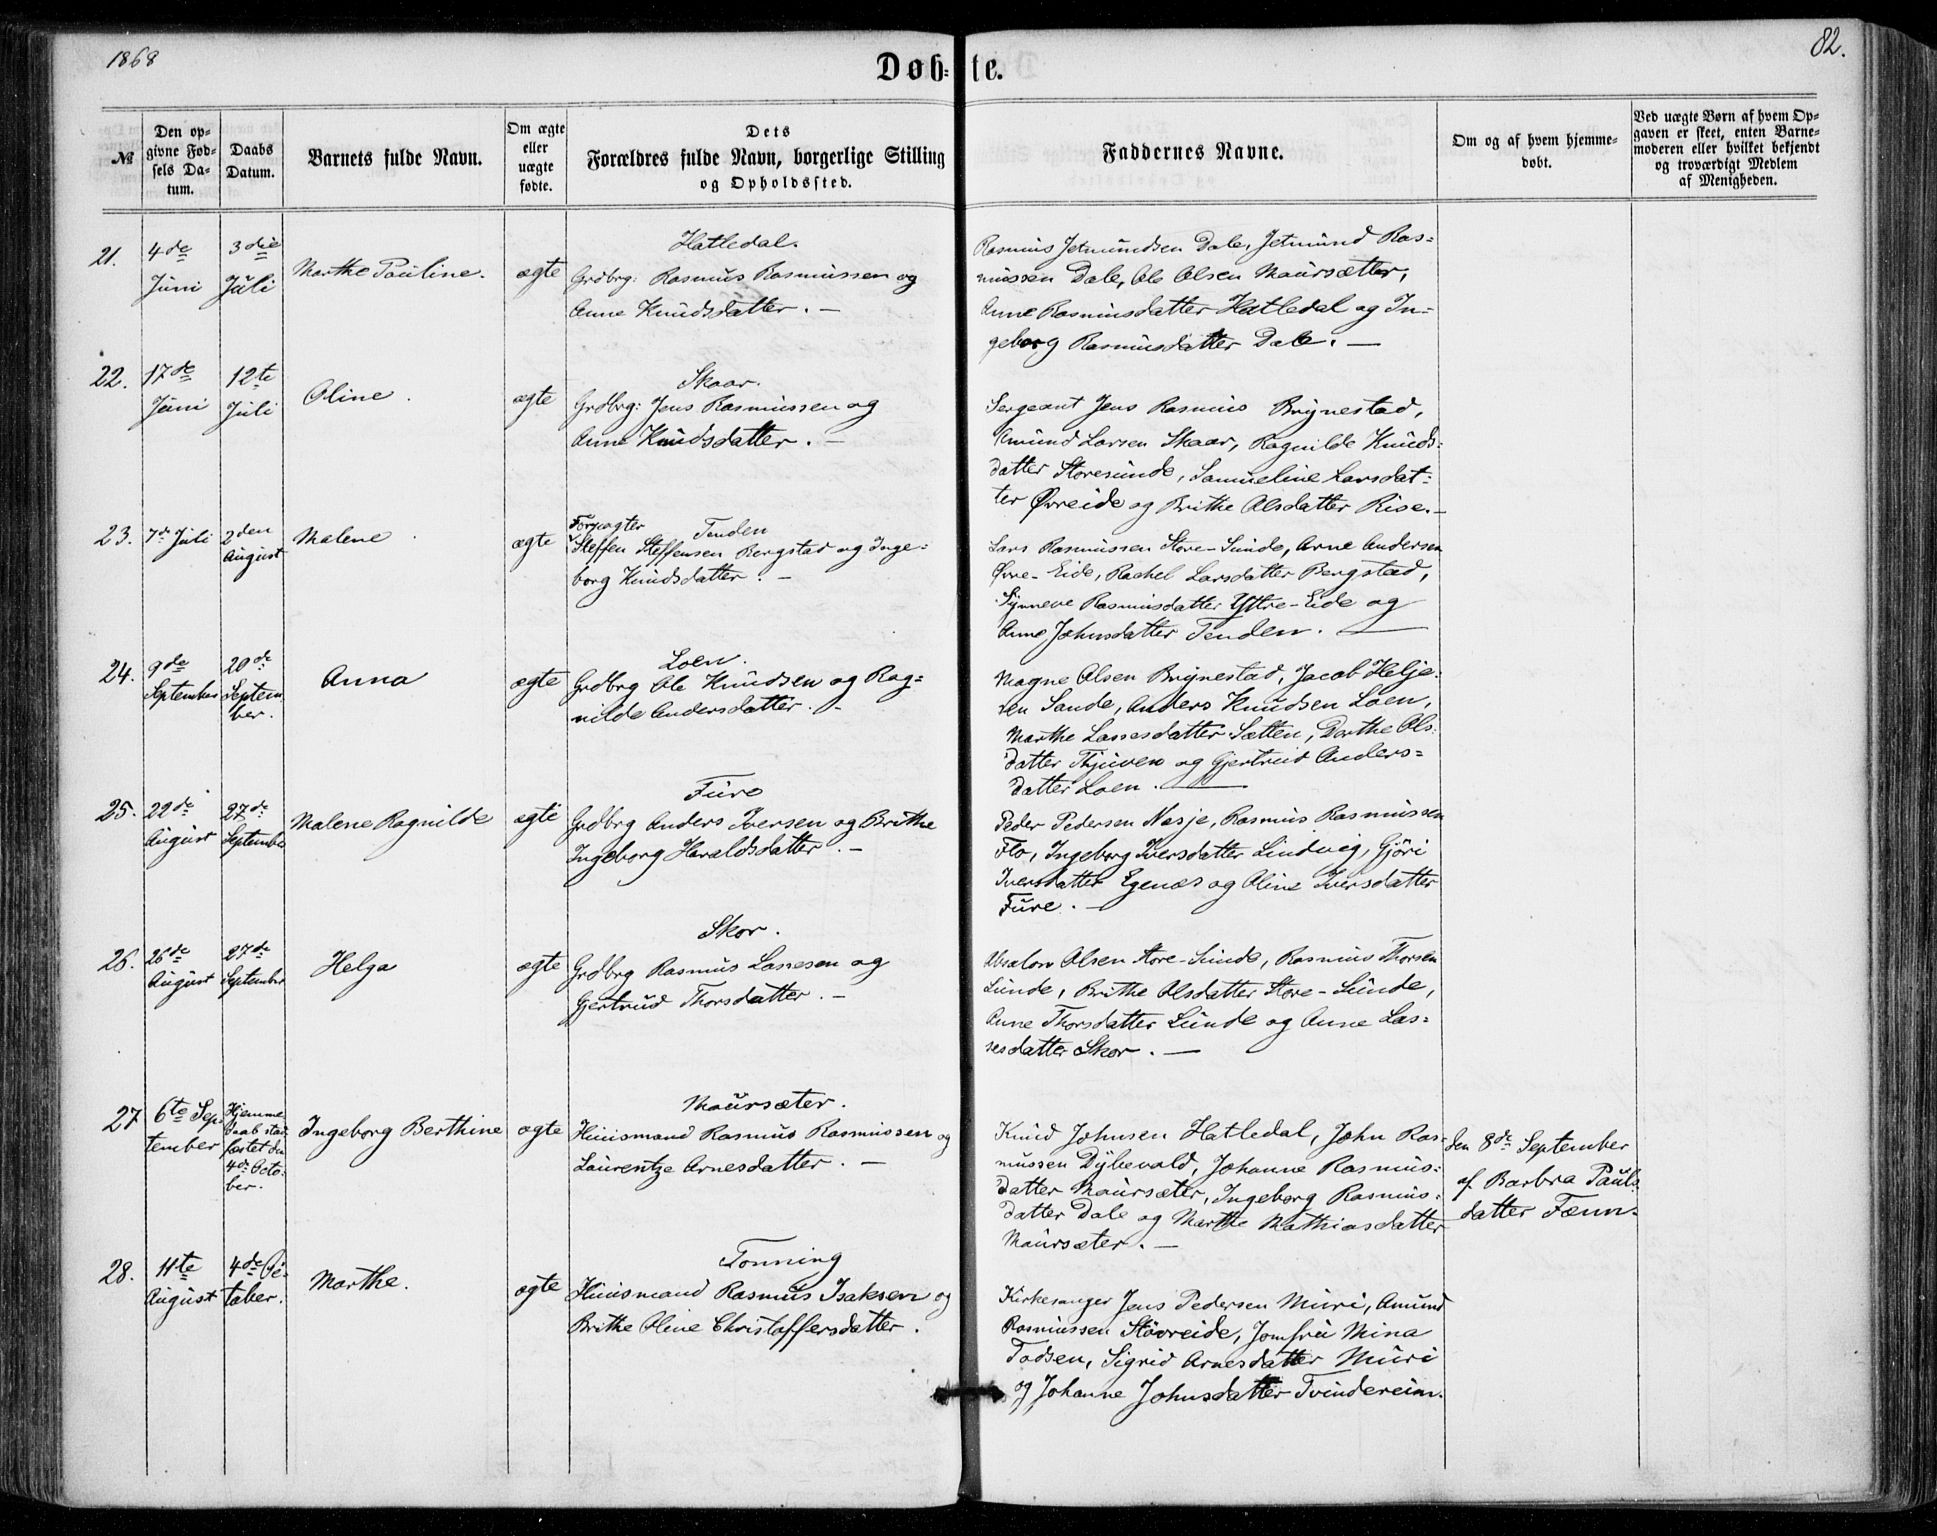 1868
Døb-te.
82.
№
Den op-
givne Fød-
sels Da-
tum.
Daabs
Datum.
Barnets fulde Navn.
Om ægte
eller
uægte
fødte.
Dets
Forældres fulde Navn, borgerlige Stilling
og Opholdssted.
Faddernes Navne.
Om og af hvem hjemme-
døbt.
Ved uægte Børn af hvem Op-
gaven er skeet, enten Barne-
moderen eller hvilket bekjendt
og troværdigt Medlem
af Menigheden.
21.
4de
Juni
3die
Juli
Marthe Pauline.
ægte
Hatledal.
Grdbrg: Rasmus Rasmussen og
Anne Knudsdatter. —
Rasmus Jetmundsen Dale, Jetmund Ras-
mussen Dale, Ole Olsen Maursætter,
Anne Rasmusdatter Hatledal og In-
geborg Rasmusdatter Dale. —
22.
17de
Juni
12te
Juli
Oline.
ægte
Skaar.
Grdbrg: Jens Rasmussen og
Anne Knudsdatter. —
Sergeant Jens Rasmus Brynestad,
Amund Larsen Skaar, Ragnilde Knuds-
datter Storesunde, Samueline Larsdat-
ter Øvreide og Brithe Olsdatter Rise. —
23.
7de Juli
2den
August
Malene
ægte
Forpagter Tenden
Steffen Steffensen Bergstad og Inge-
borg Knudsdatter. —
Lars Rasmussen Store-Sunde, Arne Andersen
Øvre-Eide, Rachel Larsdatter Bergstad,
Synneve Rasmusdatter Yttre-Eide og
Anne Johnsdatter Tenden. —
24.
9de
September
20de
Septem-
ber.
Anna
ægte
Loen.
Grdbrg Ole Knudsen og Rag-
nilde Andersdatter. —
Magne Olsen Brynestad, Jacob Helje-
sen Sande, Anders Knudsen Loen,
Marthe Lassesdatter Sætten, Dorthe Ols-
datter Thjuven og Gjertrud Anders-
datter Loen. —
25.
22de
August
27de
September
Malene Ragnilde
ægte
Fure
Grdbrg Anders Iversen og Brithe
Ingeborg Haraldsdatter. —
Peder Pedersen Nesje, Rasmus Rasmussen
Flo, Ingeborg Iversdatter Lindvig, Gjøri
Iversdatter Egenæs og Oline Iversdatter
Fure. —
26.
26de
August
27de
September
Helga
ægte
Skor.
Grdbrg Rasmus Lassesen og
Gjertrud Thorsdatter. —
Absalon Olsen Store-Sunde, Rasmus Thorsen
Lunde, Brithe Olsdatter Store-Sunde,
Anne Thorsdatter Lunde og Anne Las-
sesdatter Skor. —
27
6te Sep-
tember
Hjemme-
daab stad-
fæstet den
4de Octo-
ber.
Ingeborg Berthine
ægte
Maursæter.
Huusmand Rasmus Rasmussen og
Laurentze Arnesdatter. —
Knud Johnsen Hatledal, John Ras-
mussen Dybevald, Johanne Rasmus-
datter Maursæter, Ingeborg Rasmus-
datter Dale og Marthe Mathiasdatter
Maursæter. —
den 8de September
af Barbra Pauls-
datter Fænn.
28.
11te
August
4de Oc-
tober.
Marthe.
ægte
Tonning
Huusmand Rasmus Isaksen og
Brithe Oline Christoffersdatter.
Kirkesanger Jens Pedersen Muri, Amund
Rasmussen Støvreide, Jomfru Mina
Todsen, Sigrid Arnesdatter Muri
og Johanne Johnsdatter Tvindereim.